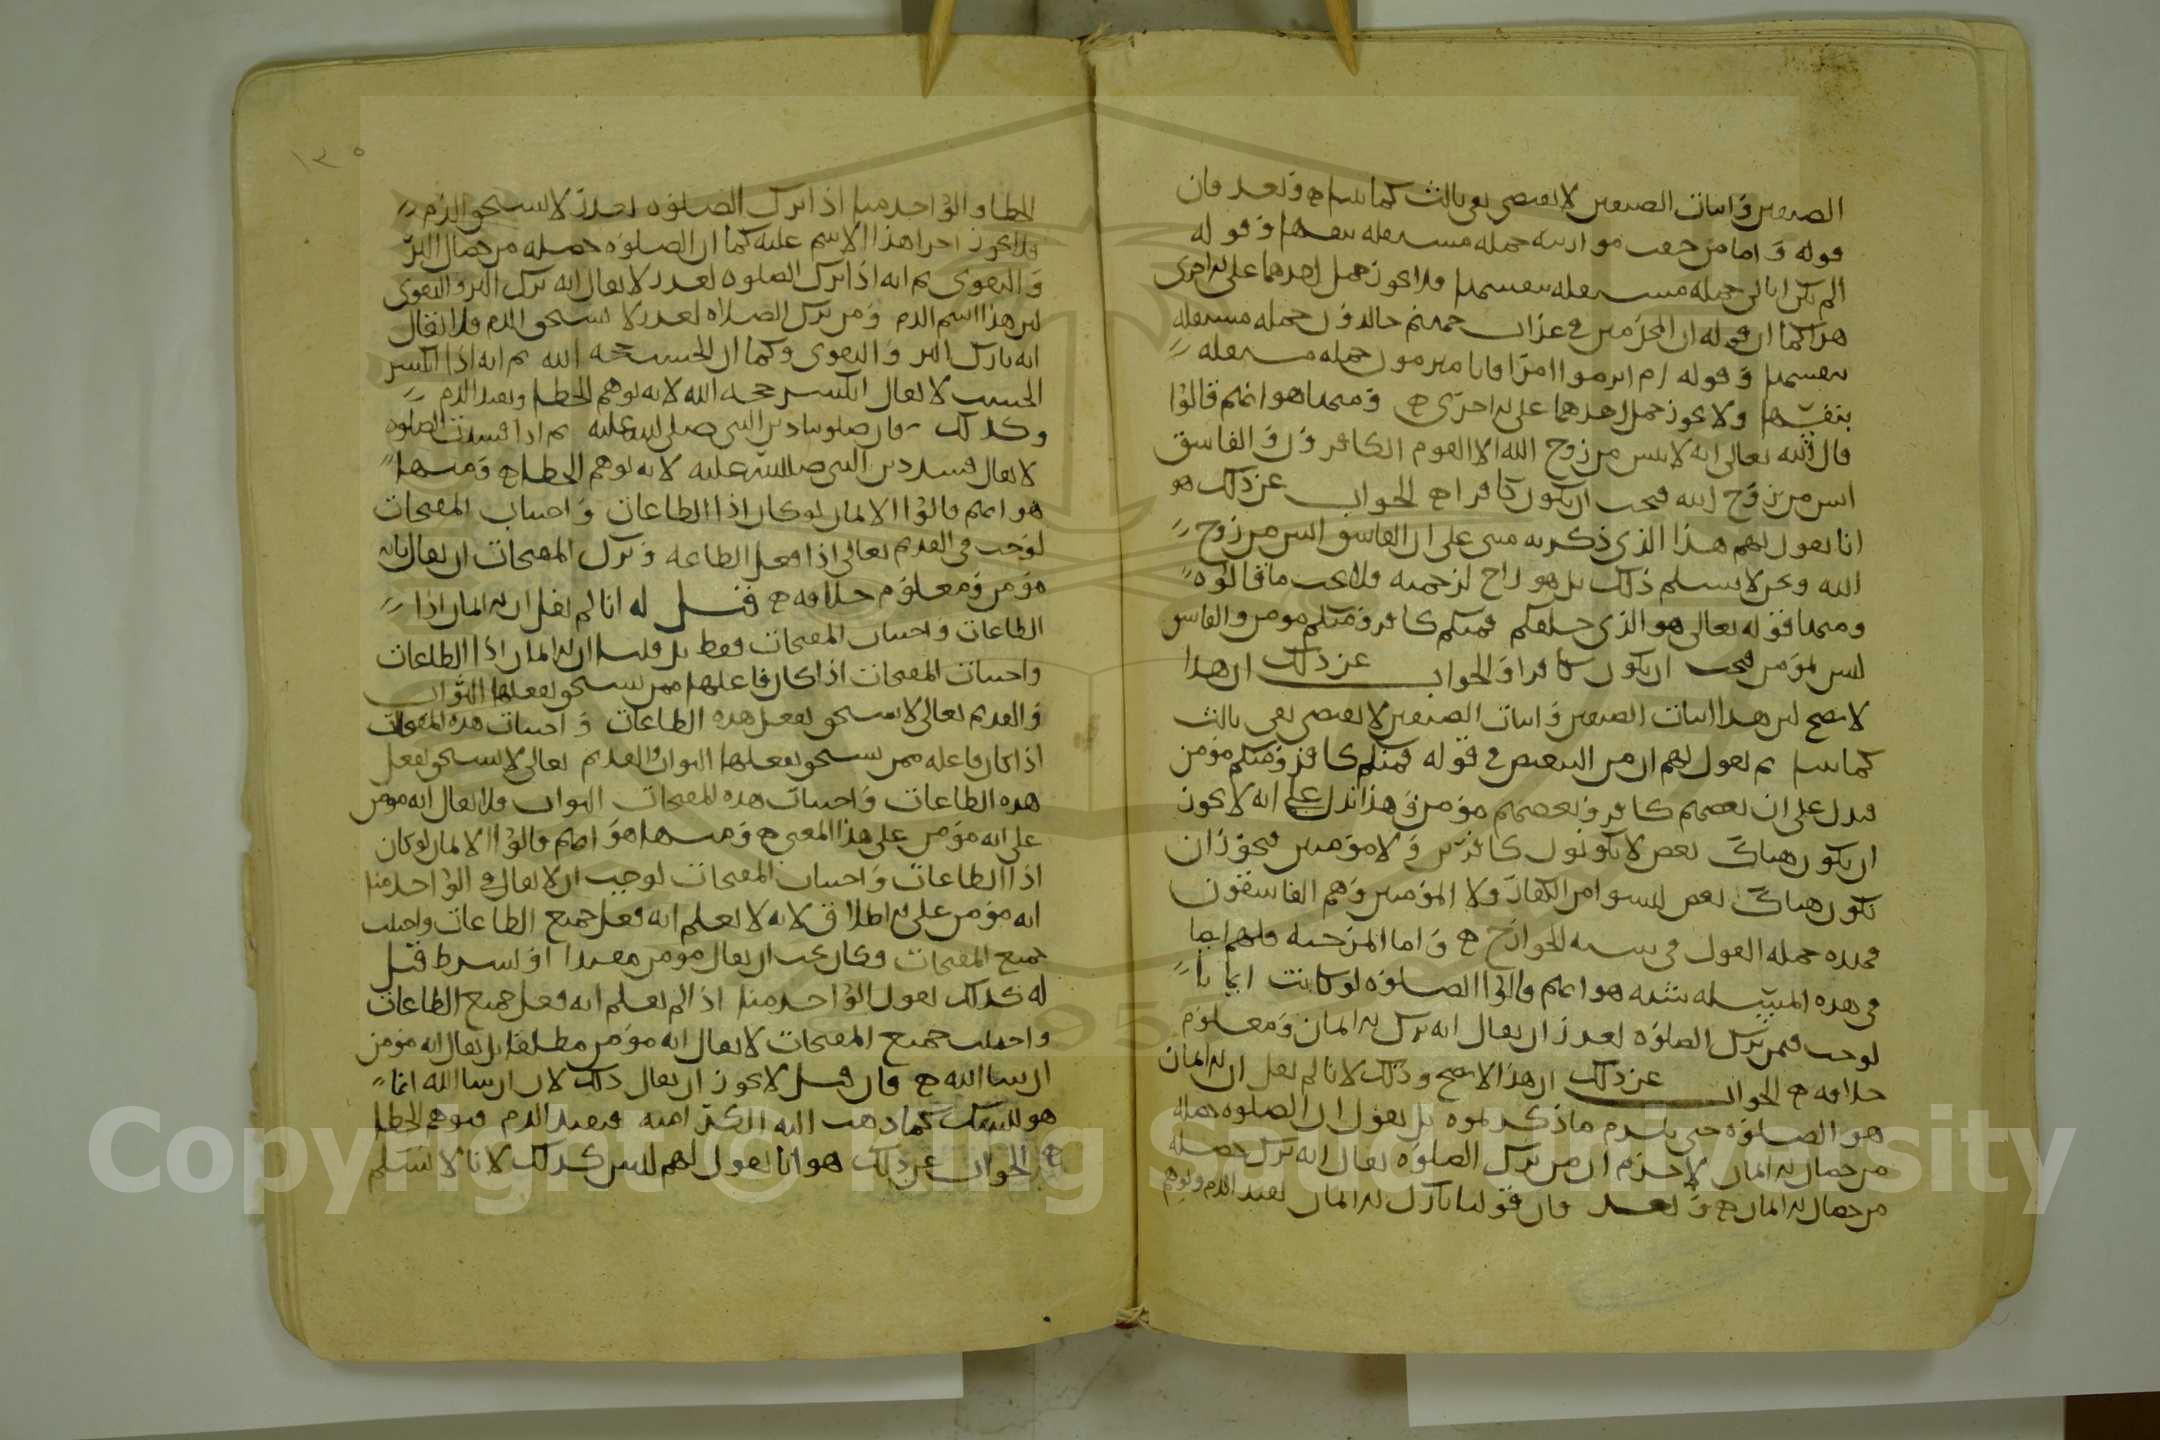 الصنفين واثبات الصنفين لا يقتضي نفي ثالث كما بينا ه وبعد فان
قوله واما من خفت موازينه جمله مستقله بنفسها وقوله
الم تكن اياتي جمله مستقله بنفسها ولا يجوز حمل احدهما على الاخرى
هذا كما ان قوله ان المجرمين في عذاب جهنم خالدون جمله مستقله
بنفسها وقوله ام ابرموا امرا فانا مبرمون جمله مستقله
بنفسها ولا يجوز حمل احدهما على الاخرى ه ومنها هو انهم قالوا
قال الله تعالى انه لا ييس من روح الله الا القوم الكافرون والفاسق
ايس من روح الله فيجب ان يكون كافرا ه الجواب عن ذلك هو
انا نقول لهم هذا الذي ذكرته مبني على ان الفاسق ايس من روح
الله ونحن لا نسلم ذلك بل هو راج لرحمته فلا يجب ما قالوه
ومنها قوله تعالى هو الذي خلقكم فمنكم كافر ومنكم مومن والفاسق
ليس بمؤمن فيجب ان يكون كافرا والجواب عن ذلك ان هذا
لا يصح لان هذا اثبات الصنفين واثبات الصنفين لا يقتضي نفي ثالث
كما بينا ثم نقول لهم ان من للتبعيض في قوله فمنكم كافر ومنكم مؤمن
فيدل على ان بعضهم كافر وبعضهم مؤمن وهذا لا يدل على انه لا يجوز
ان يكون هناك بعض لا يكونون كافرين ولا مؤمنين فيجوز ان
يكون هناك بعض ليسوا من الكفار ولا المؤمنين وهم الفاسقون
فهذه جمله القول في شبه الخوارج ه واما المرجئه فلهم ايضا
في هذه المسئله شبه هو انهم قالوا الصلوه لو كانت ايمانا
لوجب فيمن ترك الصلوه لعذر ان يقال انه ترك الايمان ومعلوم
خلافه ه الجواب عن ذلك ان هذا لا يصح وذلك لانا لم نقل ان الايمان
هو الصلوه حتى يلزم ما ذكرتموه بل نقول ان الصلوه خصله
من خصال الايمان لا جرم ان من ترك الصلوه يقال انه ترك خصله
من خصال الايمان ه وبعد فان قولنا تارك الايمان يفيد الذم ويوهم
الخطا والواحد منا اذا ترك الصلوه لعذر لا يستحق الذم
فلا يجوز اجرا هذا الاسم عليه كما ان الصلوه خصله من خصال البر
والتقوى ثم انه اذا ترك الصلوه لعذر لا يقال انه ترك البر والتقوى
لان هذا اسم الذم ومن ترك الصلاه لعذر لا يستحق الذم فلا يقال
انه تارك البر والتقوى وكما ان الخشب حجه الله ثم انه اذا انكسر
الخشب لا يقال انكسر حجه الله لانه يوهم الخطا ويفيد الذم
وكذلك فان صلوتنا دين النبي صلى الله عليه ثم اذا فسدت الصلوه
لا يقال فسد دين النبي صلى الله عليه لانه يوهم الخطا ه ومنها
هو انهم قالوا الايمان لو كان اداء الطاعات واجتناب المقبحات
لوجب في القديم تعالى اذا فعل الطاعه وترك المقبحات ان يقال بانه
مؤمن ومعلوم خلافه ه قيل له انا لم نقل ان الايمان اداء
الطاعات واجتناب المقبحات فقط بل قلنا ان الايمان اداء الطاعات
واجتناب المقبحات اذا كان فاعلها ممن يستحق بفعلها الثواب
والقديم تعالى لا يستحق بفعل هذه الطاعات واجتناب هذه المقبحات
اذا كان فاعله ممن يستحق بفعلها الثواب والقديم تعالى لا يستحق بفعل
هذه الطاعات واجتناب هذه المقبحات الثواب فلا يقال انه مؤمن
على انه مؤمن على هذا المعنى ه ومنها هو انهم قالوا الايمان لو كان
اداء الطاعات واجتناب المقبحات لوجب ان لا يقال في الواحد منا
انه مؤمن على الاطلاق لانه لا يعلم انه فعل جميع الطاعات واجتنب
جميع المقبحات وكان يجب ان يقال مؤمن مقيدا او بشرط قيل
له كذلك نقول الواحد منا اذا لم يعلم انه فعل جميع الطاعات
واجتنب جميع المقبحات لا يقال انه مؤمن مطلقا بل يقال انه مؤمن
ان شا الله ه فان قيل لا يجوز ان يقال ذلك لان ان شا الله انما
هو للشك كما ذهب اليه الكراميه فيفيد الذم فيوهم الخطا
ه الجواب عن ذلك هو انا نقول لهم ليس كذلك لانا لا نسلم
Copyright © King Saud University